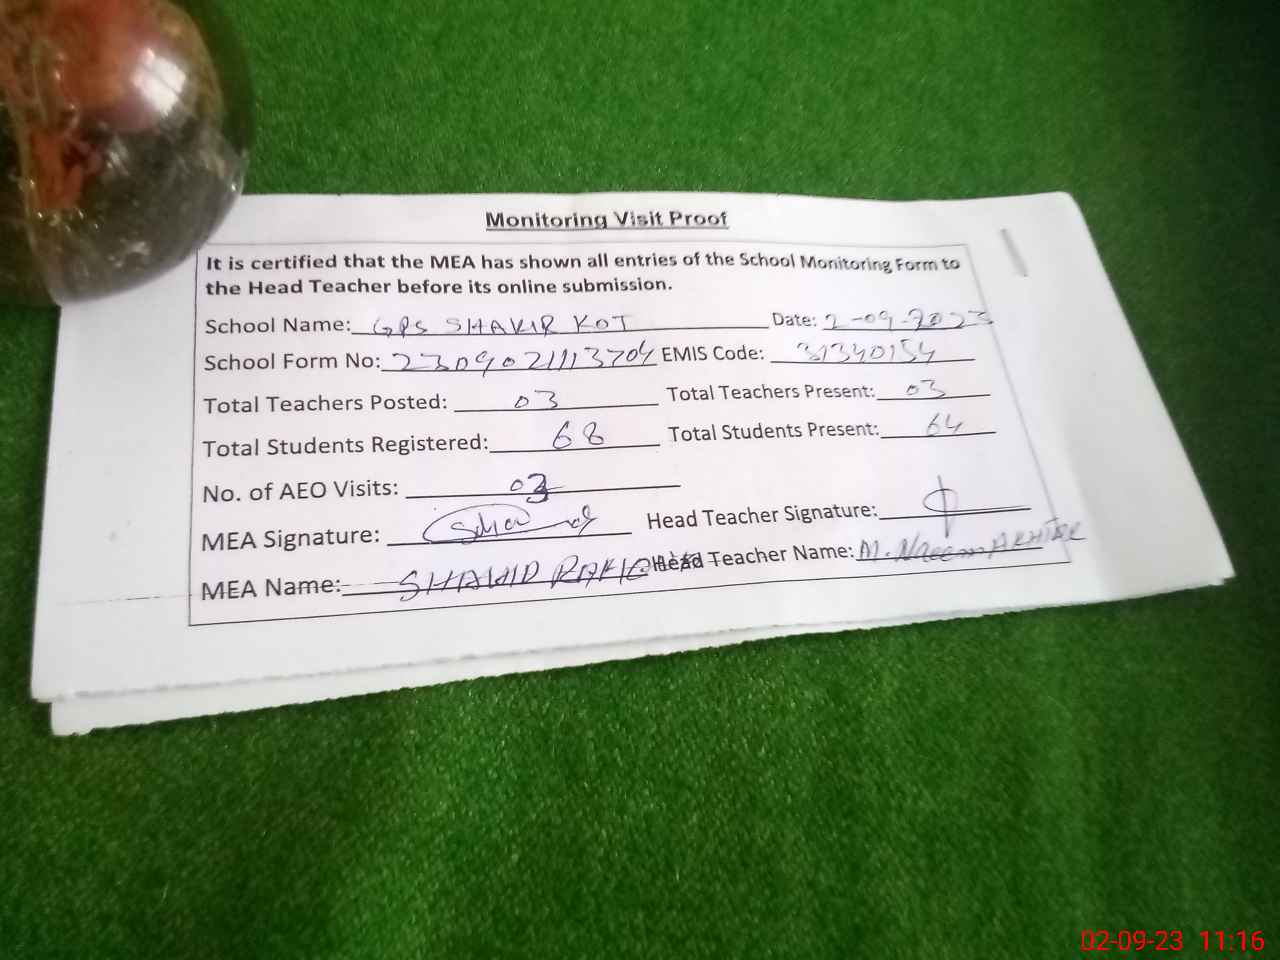 Monitoring Visit Proof
It is certified that the MEA has shown all entries of the School Monitoring Form to
the Head Teacher before its online submission.
School Name: GPS SHAKIR KOT Date: 2-09-2023
School Form No: 2309021113704 EMIS Code: 31340154
Total Teachers Posted: 03 Total Teachers Present: 03
Total Students Registered: 68 Total Students Present: 64
No. of AEO Visits: 03
MEA Signature: Head Teacher Signature:
MEA Name: SHAHID Head Teacher Name: M. Naeem AKHTAR
02-09-23 11:16